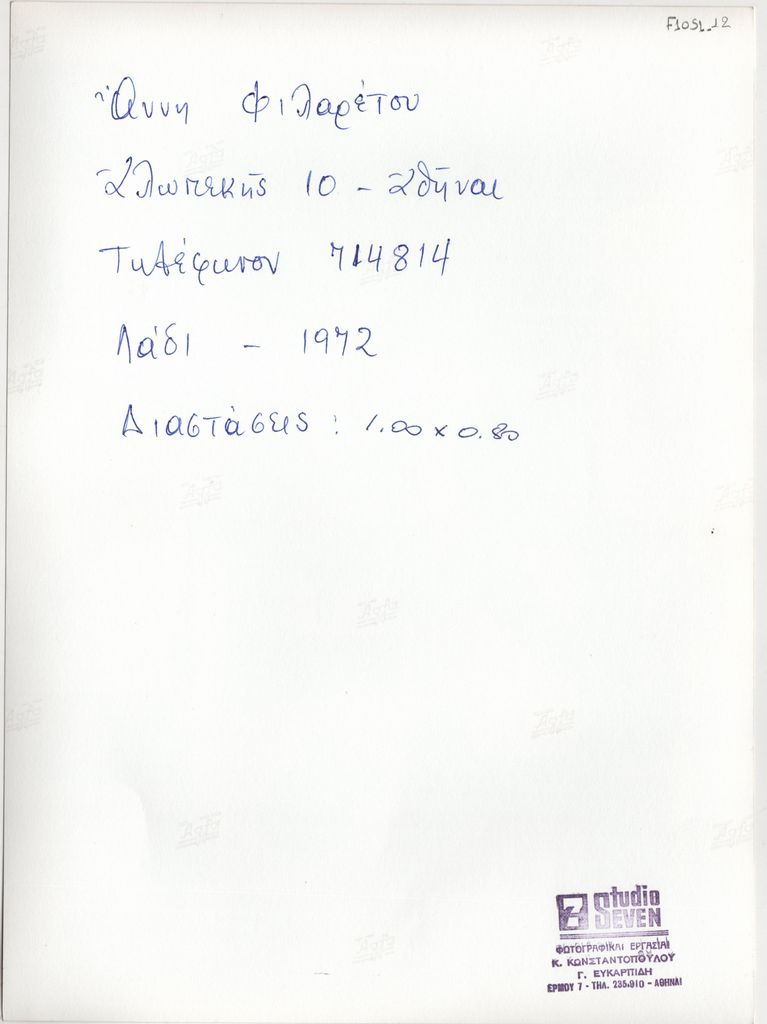 F1051_12
Ἄννη Φιλαρέτου
Ἀλωπεκῆς 10 - Ἀθῆναι
Τηλέφωνον 714814
Λάδι - 1972
Διαστάσεις : 1.00 x 0.80
Studio
SEVEN
ΦΩΤΟΓΡΑΦΙΚΑΙ ΕΡΓΑΣΙΑΙ
Κ. ΚΩΝΣΤΑΝΤΟΠΟΥΛΟΥ
Γ. ΕΥΚΑΡΠΙΔΗ
ΕΡΜΟΥ 7 - ΤΗΛ. 235.910 - ΑΘΗΝΑΙ